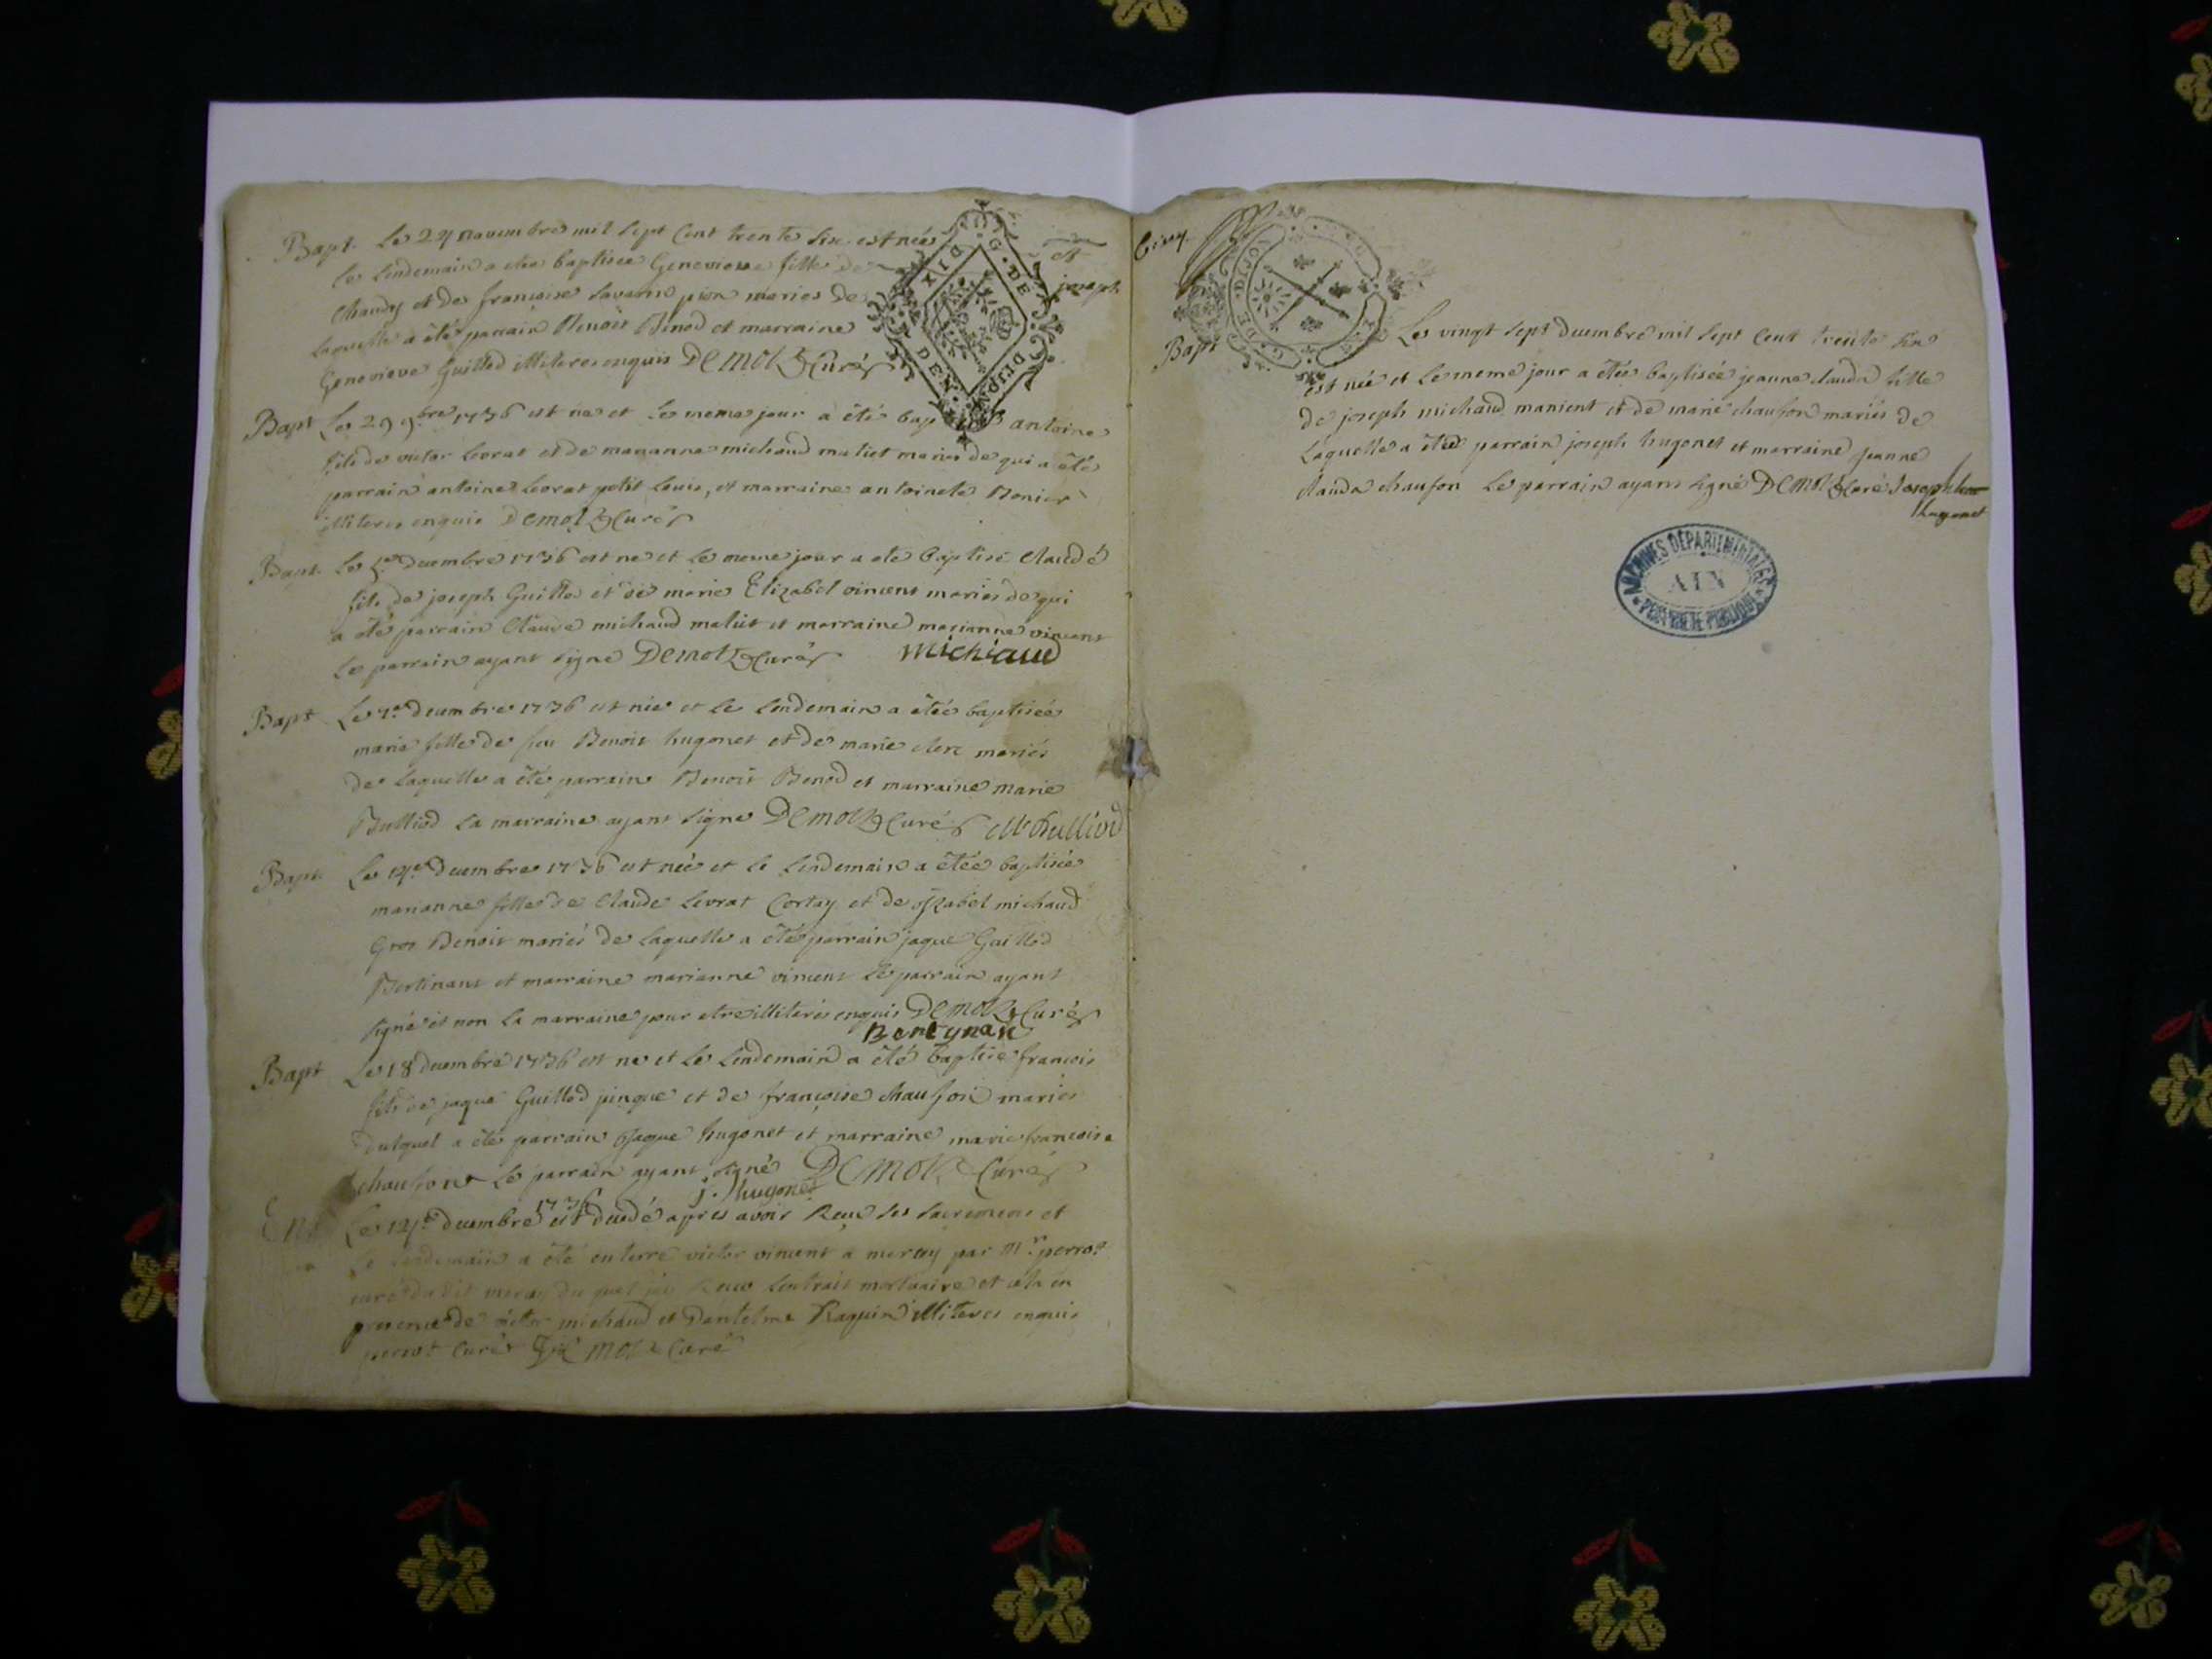 Bapt. Le 24 novembre mil sept cent trente six est née
le lendemain a etée baptisée Genevieve fille de
et joseph
Chaudy et de francoise savarin pion mariés de
laquelle a été parrain Benoit Benod et marraine
Genevieve Guillod illiteres enquis Demolz Curé
Bapt Le 29 9bre 1736 est ne et le meme jour a été bap antoine
fils de victor Levrat et de marianne michaud maliet mariés de qui a été
parrain antoine Levrat petit Louis, et marraine antoinete Benier
illiteres enquis Demolz Curé
Bapt. Le decembre 1736 est ne et le meme jour a été baptisé Claude
fils de joseph Guillo et de marie Elizabet vincent mariés de qui
a été parrain Claude michaud maliet et marraine marianne vincent
le parrain ayant signé Demolz Curé michiaud
Bapt Le decembre 1736 est née et le lendemain a étée baptisée
marie fille de feu Benoit hugonet et de marie clerc mariés
de laquelle a été parrain Benoit Benod et marraine marie
Bulliod la marraine ayant signé Demolz Curé M Bulliod
Bapt. Le 14e decembre 1736 est née et le lendemain a étée baptisée
marianne fille de Claude Levrat Cortay et de yzabel michaud
Gros Benoit mariés de laquelle a été parrain jaque Guillod
Bertinant et marraine marianne vincent le parrain ayant
signé et non la marraine pour etre illiterés enquis Demolz Curé
Bertynan
Bapt Le 18 decembre 1736 est ne et le lendemain a été baptisé francois
fils de jaque Guillod pinque et de françoise chaufon mariés
duquel a été parrain jaque hugonet et marraine marie francoise
chaufon Le parrain ayant signé Demolz Curé
j. hugonet
Ent Le 12e decembre 1736 est decedé apres avoir Receu les sacremens et
le lendemain a été enterré victor vincent a par Mr perrot
curé du dit du quel jai Receu lextrait mortuaire et cela en
presence de victor michaud et Dantelme Raquin illiteres enquis
perrot Curé Demolz Curé
G. DE DIJON
DIX DEN.
Bapt Les vingt sept decembre mil sept cent trente six
est née et le meme jour a étée baptisée jeanne clauda fille
de joseph michaud manient et de marie chaufon mariés de
Laquelle a été parrain joseph hugonet et marraine jeanne
clauda chaufon le parrain ayant signé Demolz Curé Joseph
hugonet
G. DE DIJON
ARCHIVES DÉPARTEMENTALES
AIN
PROPRIÉTÉ PUBLIQUE